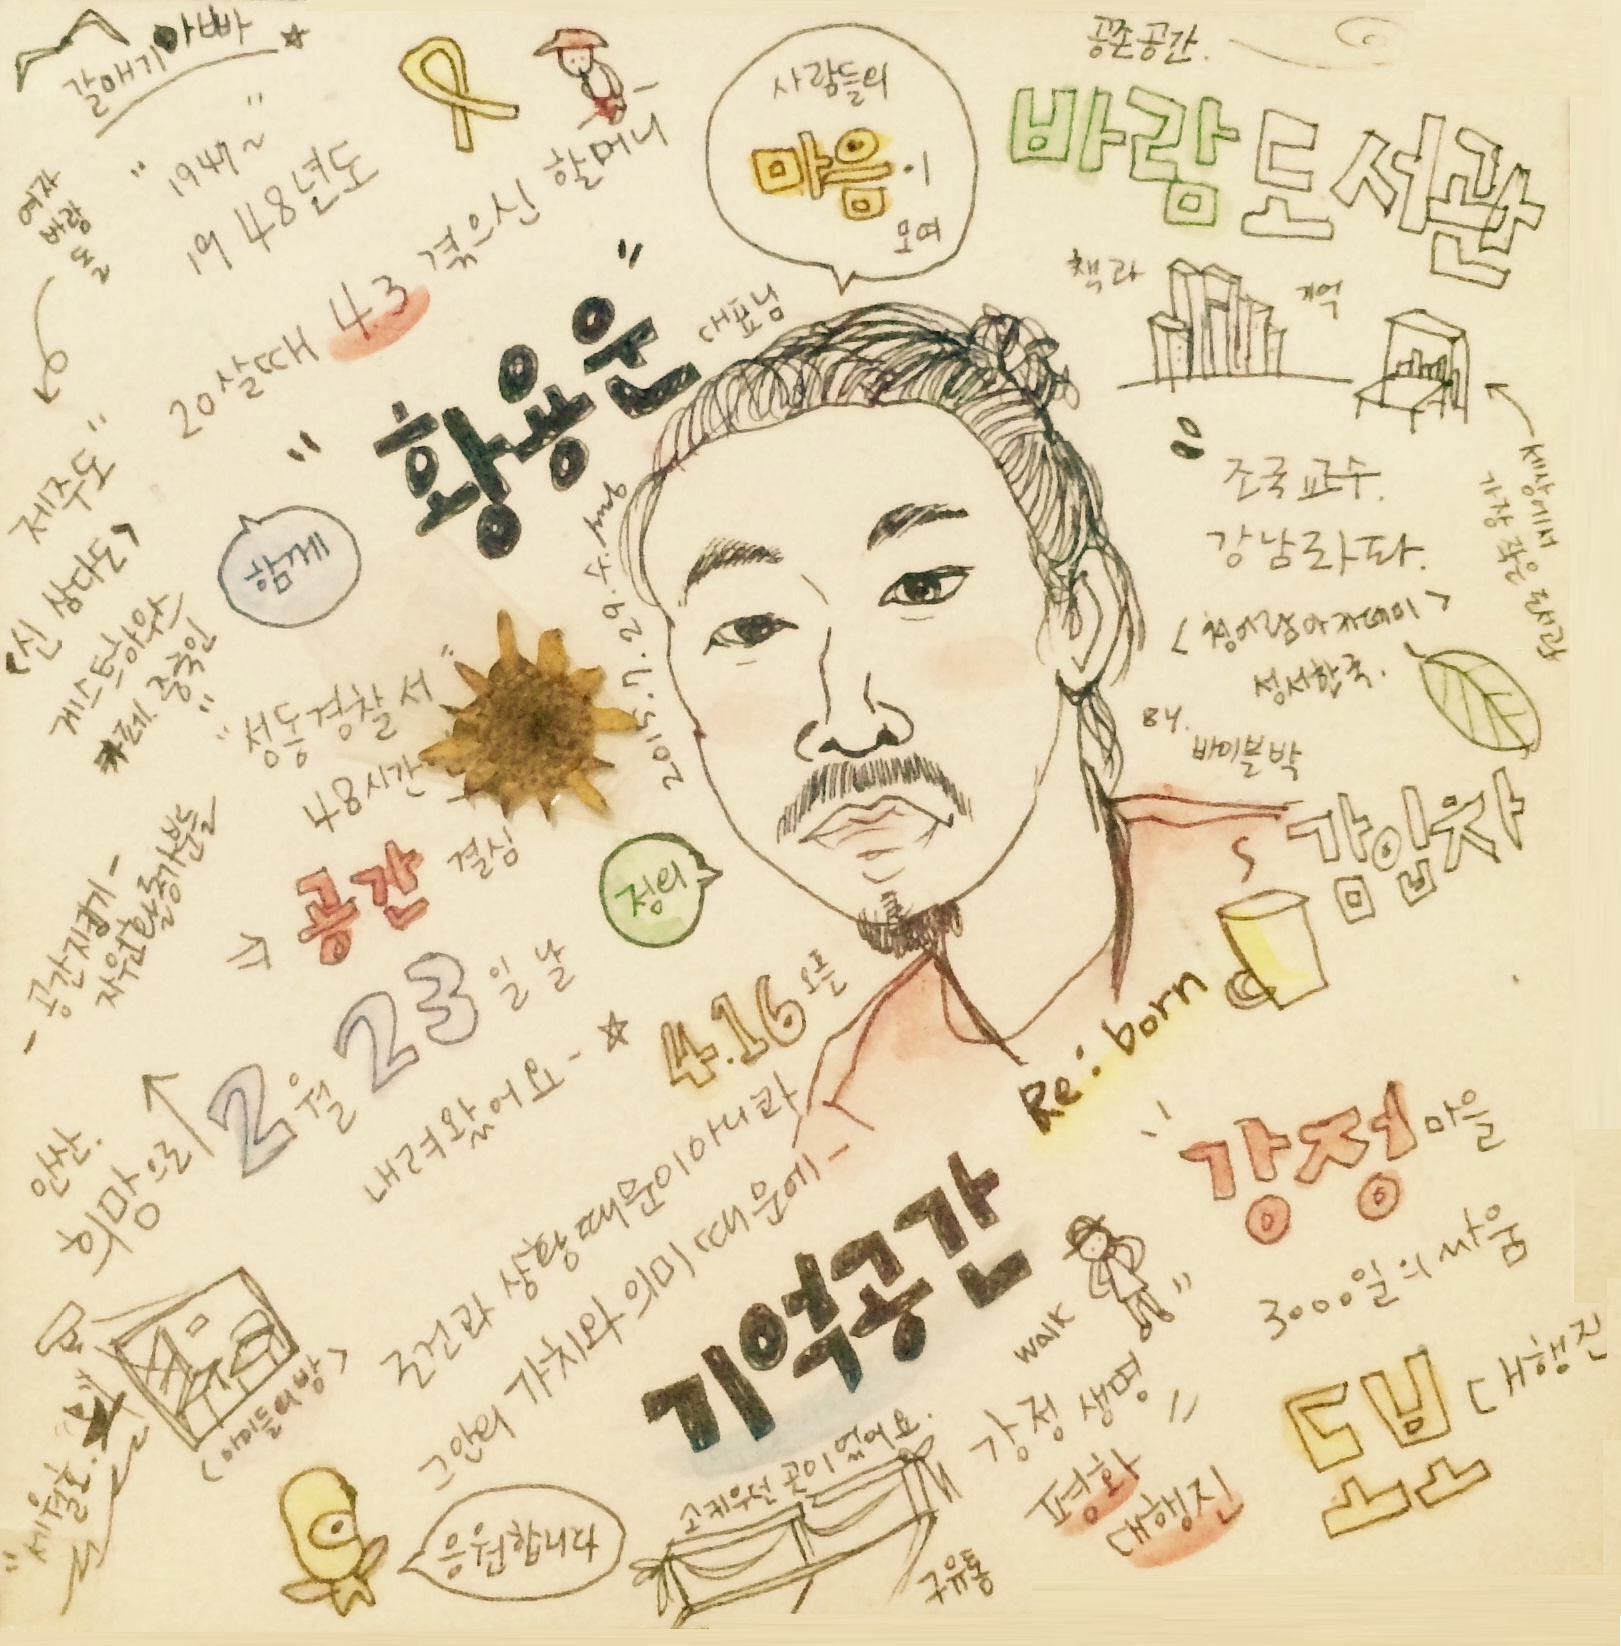 갈매기아빠
"1947~
1948년도
20살때 4.3 겪으신 할머니
여자
바람
돌
제주도"
<신 삼다도>
게스트하우스
카페. 중국인
"황용운"
대표님
사람들의
마음이
모여
공존공간.
바람도서관
책과
기억
세상에서
가장 작은 도서관
조국교수.
강남좌파.
<청어람아카데미>
정서한국.
BY.
바이블박
감잎차
함께
2015.7.29.수.
"성동경찰서"
48시간
⇒ 공간 결심
정의
- 공간지키기 -
자원활동가분들
2월 23일 날
내려왔어요~
4.16 오픈
Re:born
안산.
희망으로
조건과 상황때문이아니라
그안의 가치와 의미 때문에~
기억공간
<아이들의 방>
"세월호.
응원합니다
walk
강정 생명
평화
대행진
"강정마을
3000일의 싸움
도보
대행진